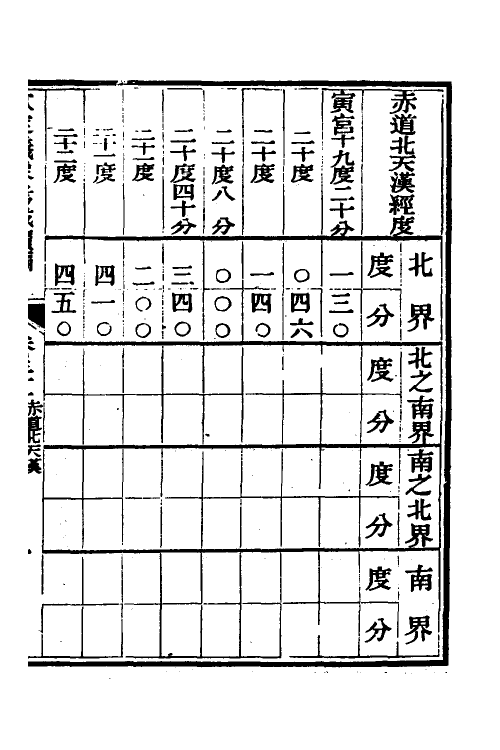 赤道北天漢經度 北界 北之南界 南之北界 南界
度 分 度 分 度 分 度 分
寅宮十九度二十分 一 三〇
二十度 〇 四六
二十度 一 四〇
二十度八分 〇 〇〇
二十度四十分 三 四〇
二十一度 二 〇〇
二十一度 四 一〇
二十二度 四 五〇
赤道北天漢